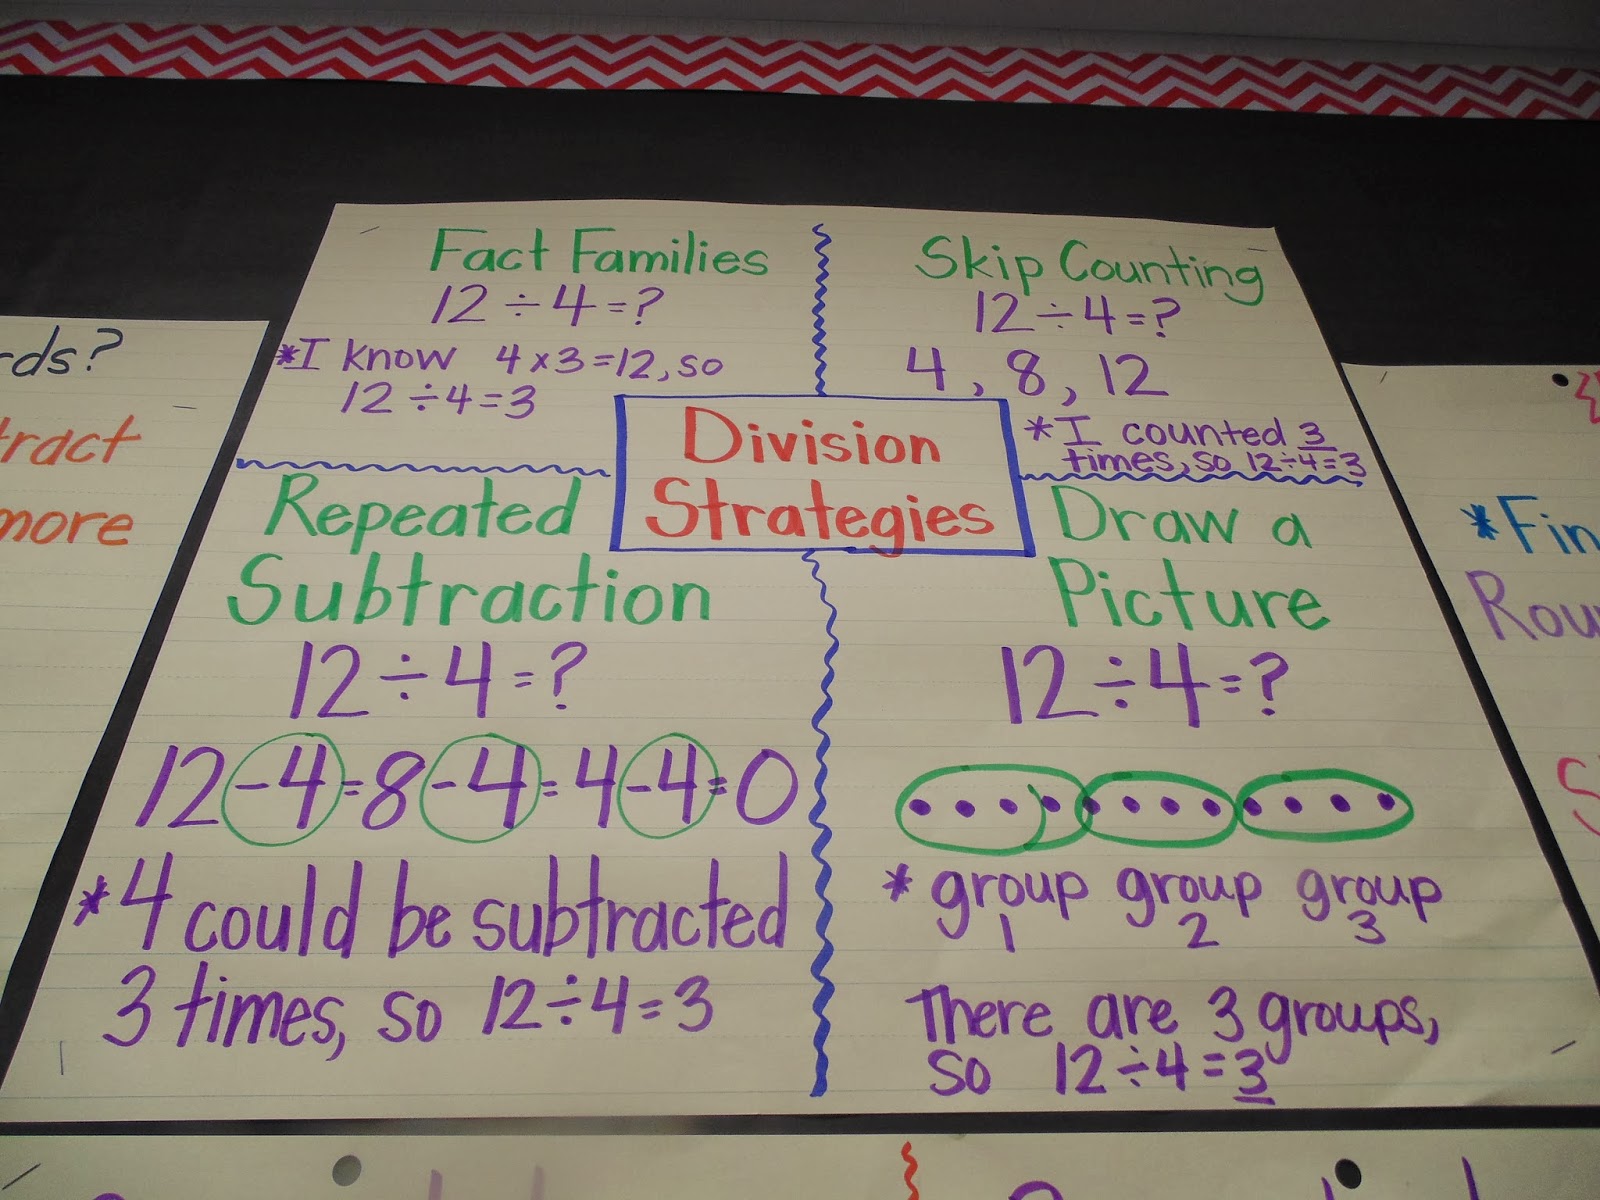 Fact Families
12 ÷ 4 = ?
*I know 4 x 3 = 12, so
12 ÷ 4 = 3
Skip Counting
12 ÷ 4 = ?
4, 8, 12
*I counted 3
times, so 12 ÷ 4 = 3
Division
Strategies
Repeated
Subtraction
12 ÷ 4 = ?
12 - 4 = 8 - 4 = 4 - 4 = 0
*4 could be subtracted
3 times, so 12 ÷ 4 = 3
Draw a
Picture
12 ÷ 4 = ?
* group group group
1 2 3
There are 3 groups,
so 12 ÷ 4 = 3
rds?
tract
more
*Fin
Rou